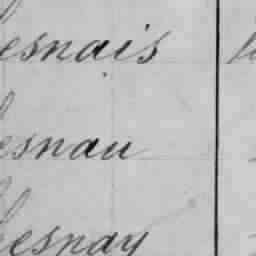 esnais
esnau
esnay